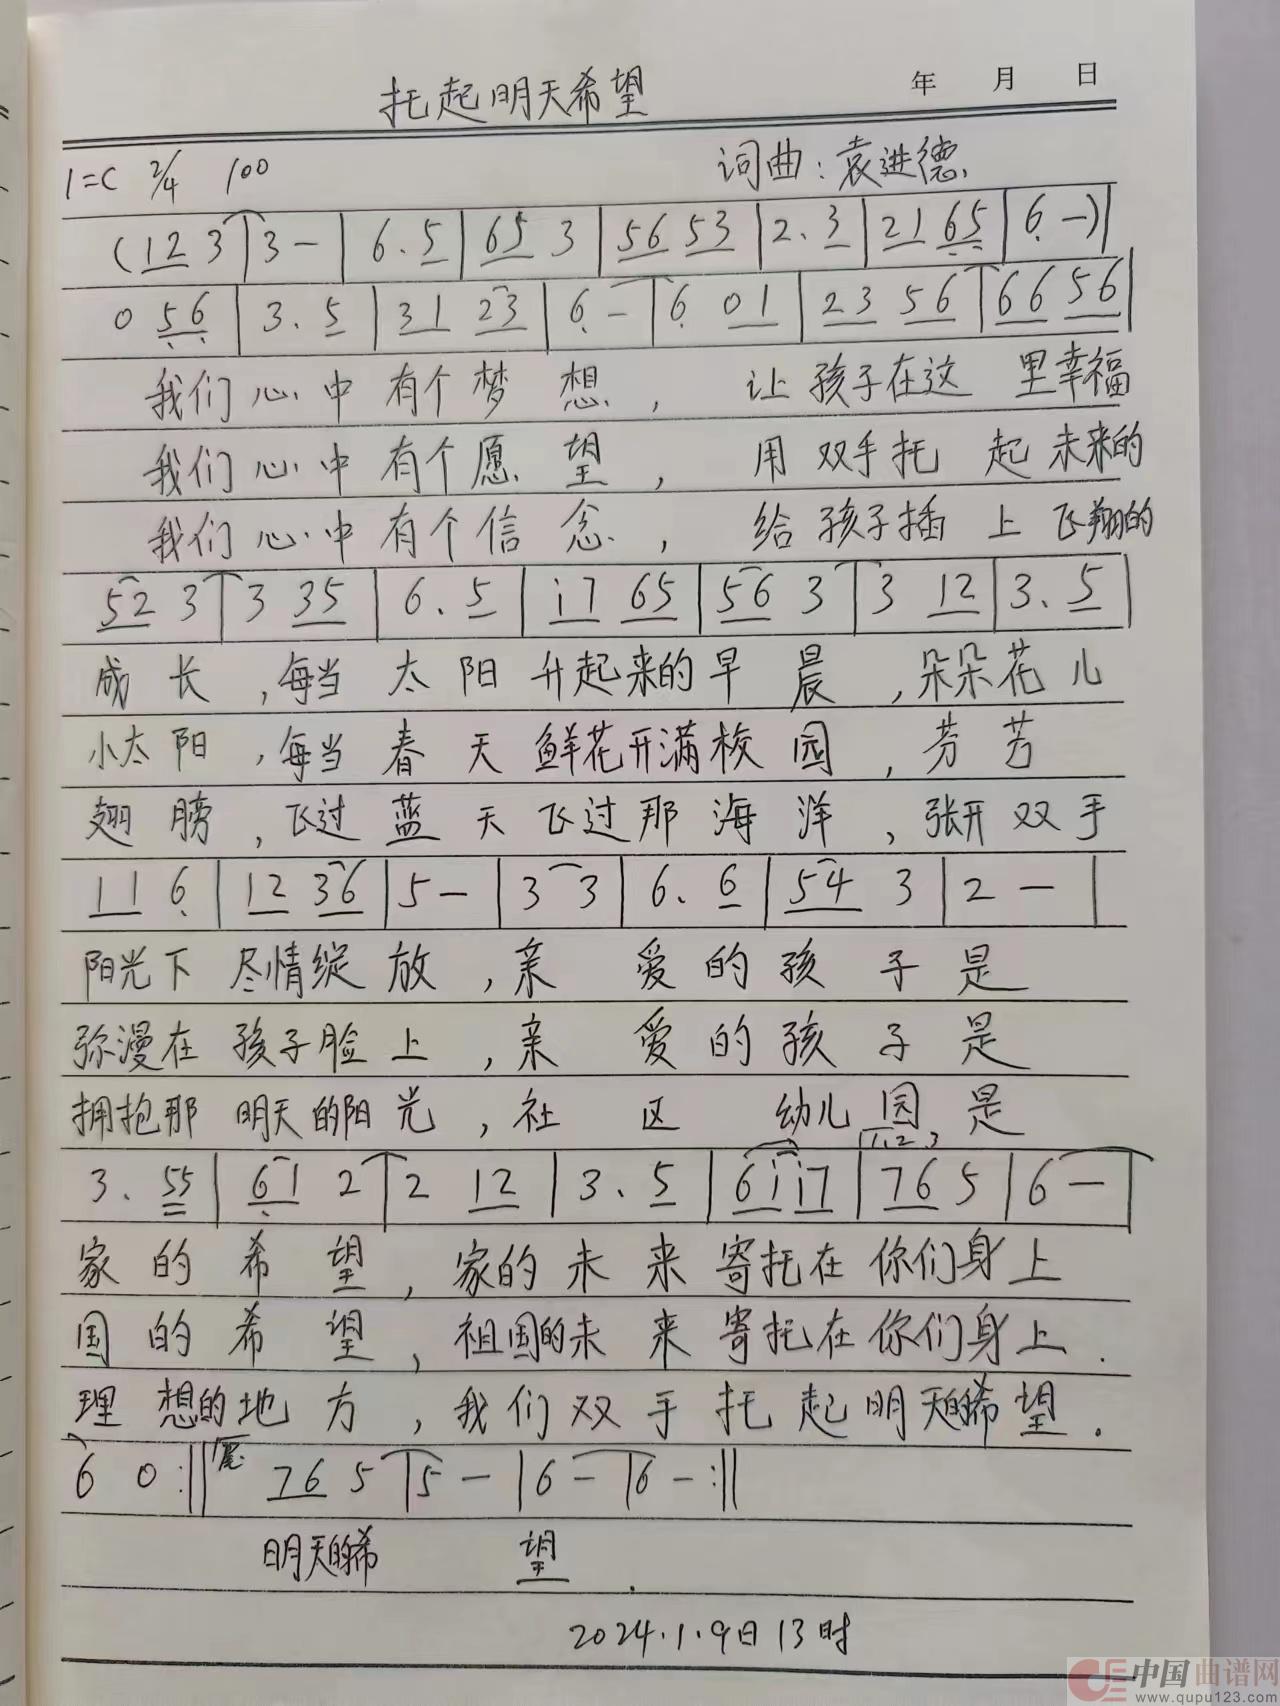 年 月 日
托起明天希望
1=C 2/4 100 词曲：袁进德
(12 3|3 -|6. 5|65 3|56 53|2. 3|21 65|6 -)|
0 56|3. 5|31 23|6 -|6 01|23 56|66 56|
我们心中有个梦想，让孩子在这里幸福
我们心中有个愿望，用双手托起未来的
我们心中有个信念，给孩子插上飞翔的
52 3|3 35|6. 5|i7 65|56 3|3 12|3. 5|
成长，每当太阳升起来的早晨，朵朵花儿
小太阳，每当春天鲜花开满校园，芳芳
翅膀，飞过蓝天飞过那海洋，张开双手
11 6|12 36|5 -|3 3|6. 6|54 3|2 -|
阳光下尽情绽放，亲爱的孩子是
弥漫在孩子脸上，亲爱的孩子是
拥抱那明天的阳光，社区幼儿园是
1.2.3
3. 55|61 2|2 12|3. 5|6i i7|76 5|6 -|
家的希望，家的未来寄托在你们身上
国的希望，祖国的未来寄托在你们身上.
理想的地方，我们双手托起明天的希望.
6 0:‖尾 76 5|5 -|6 -|6 -:‖
明天的希望.
2024.1.9日13时
中国曲谱网
www.qupu123.com